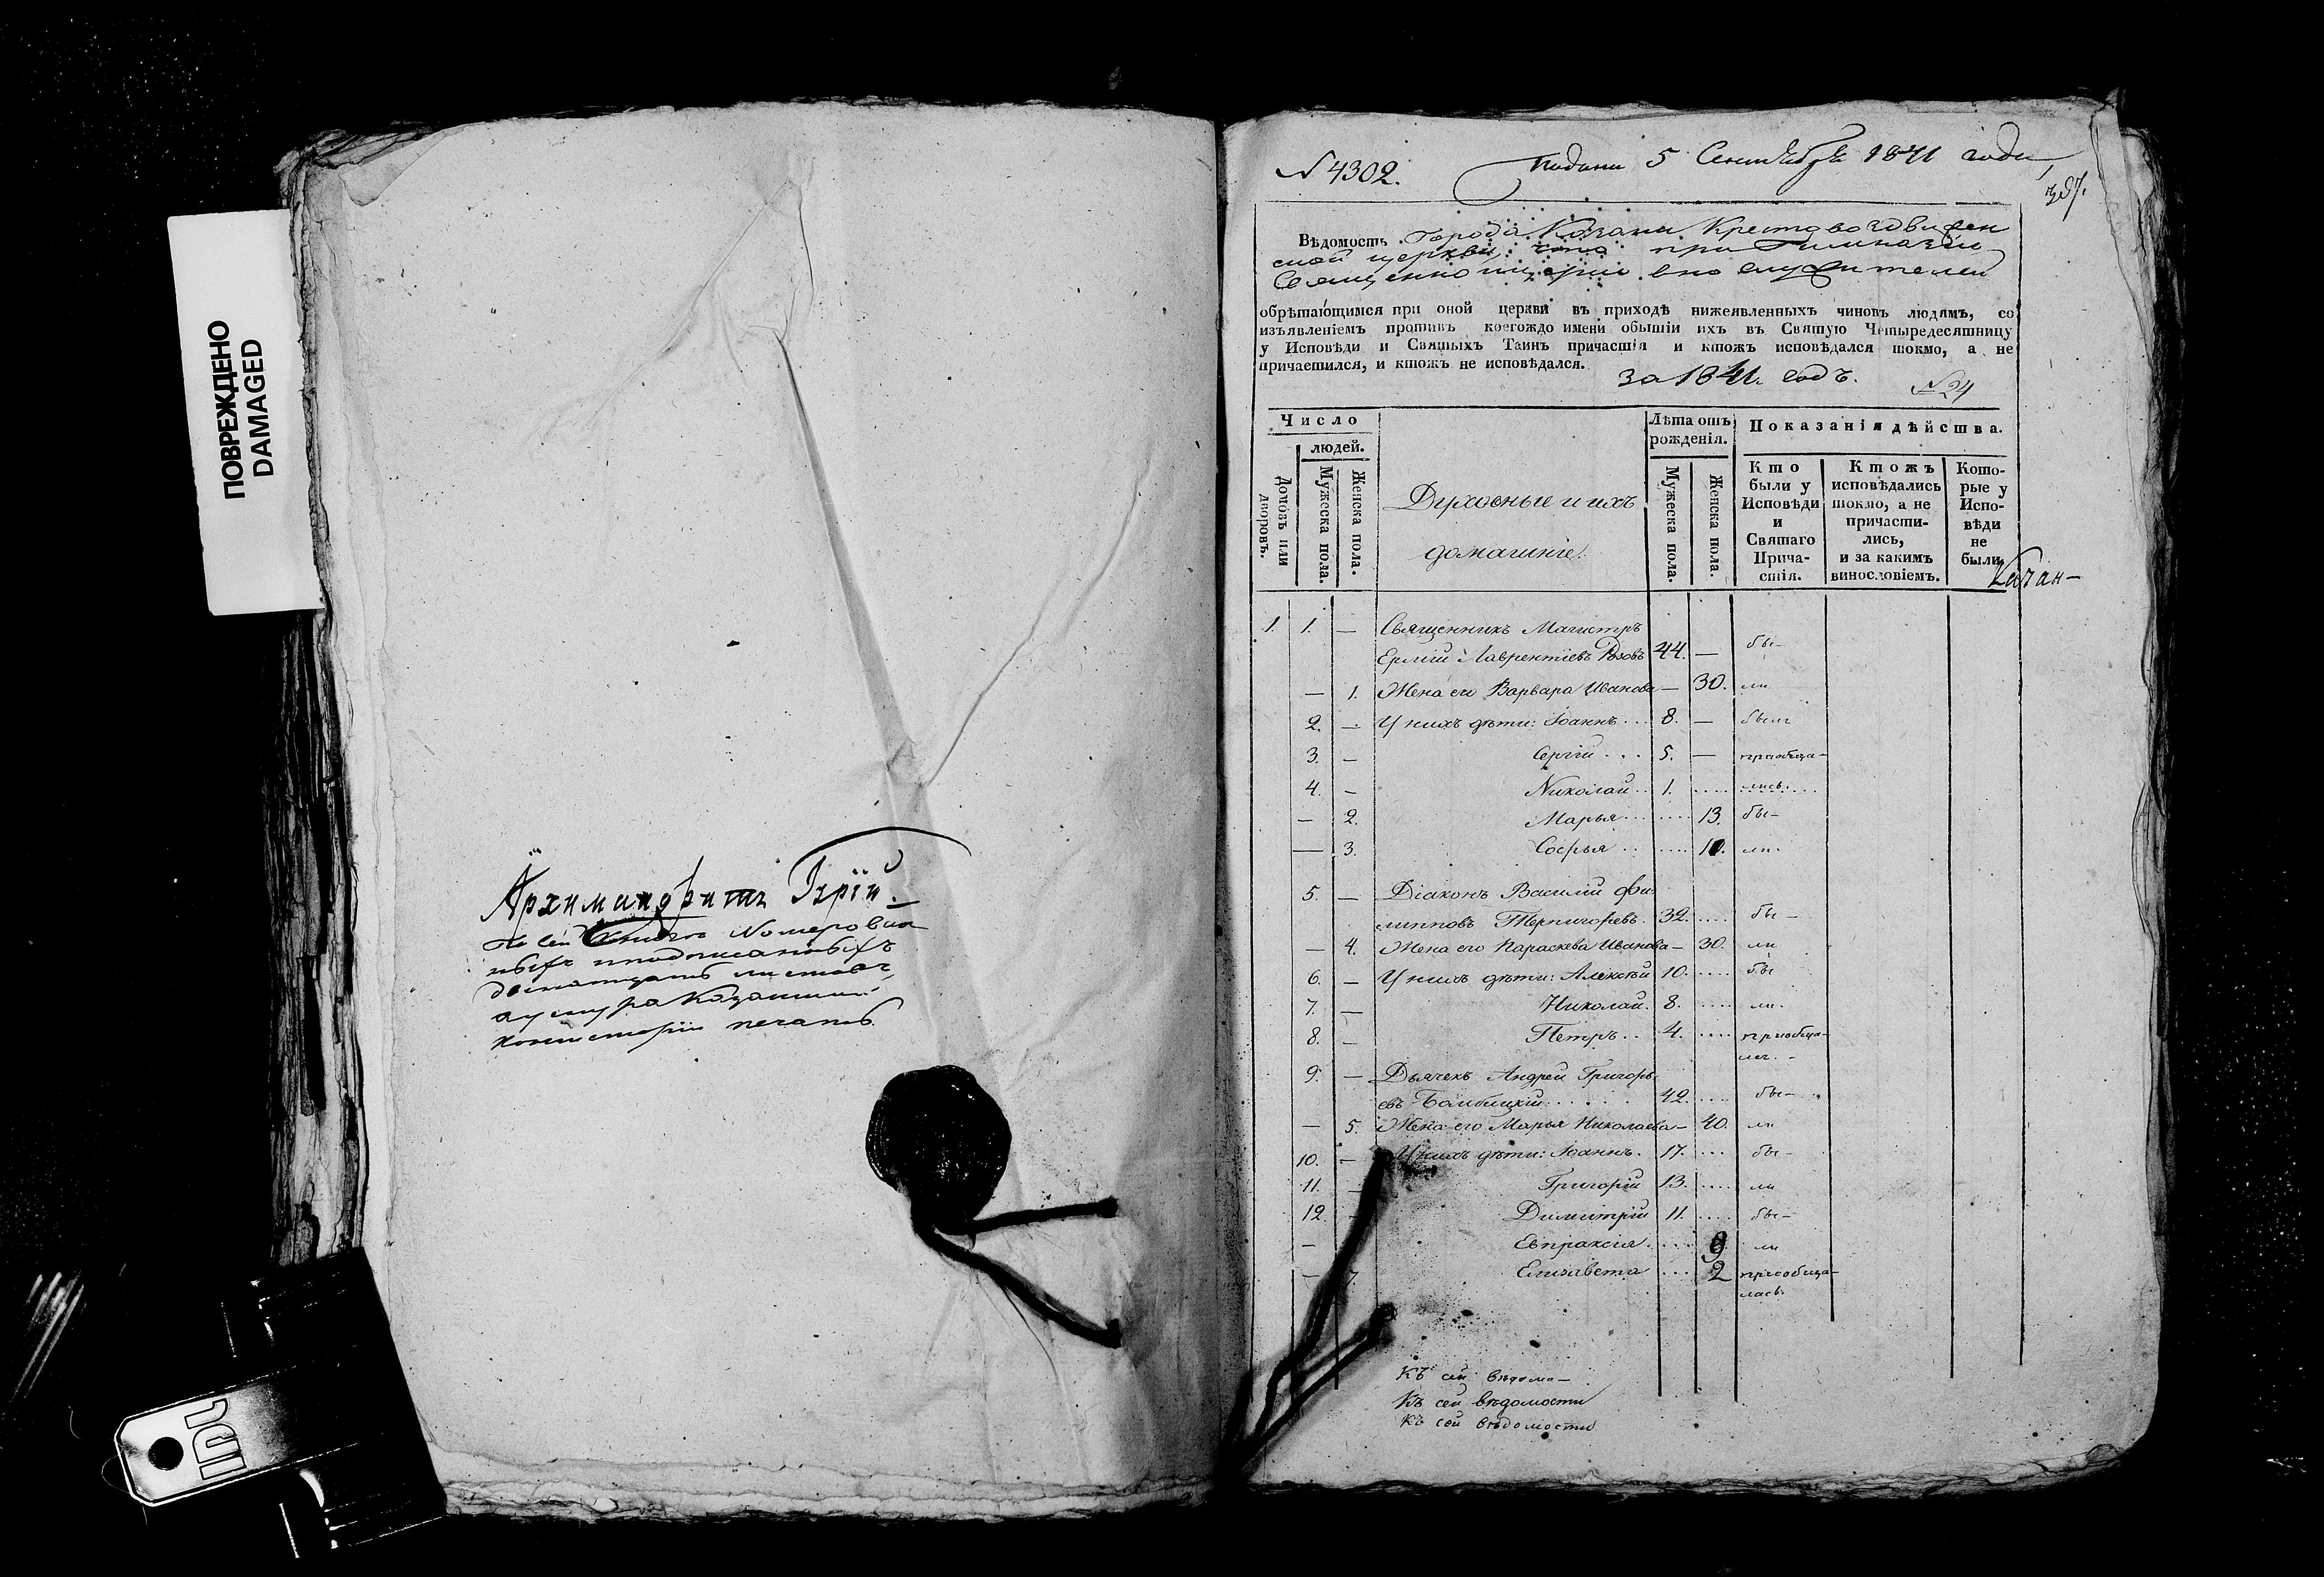 ПОВРЕЖДЕНО
DAMAGED
Архимандритъ Гурій.
въ сей книге Номерован
ныхъ и подписанныхъ
листовъ
Казанской
консисторіи печать.
№ 4302.
Подана 5 Сентября 1841 года
Вѣдомость Города Казани Крестовоздвижен
ской церкви, что при Гимназіи
Священно и церковно служителей
обрѣтающимся при оной церкви въ приходѣ нижеявленныхъ чиновъ людямъ, со
изъявленіемъ противъ коегождо имени обытіи ихъ въ Святую Четыредесятницу
у Исповѣди и Святыхъ Таинъ причастія и ктожъ исповѣдался токмо, а не
причастился, и ктожъ не исповѣдался.
за 1841. годъ. №24
Число
людей.
Домовъ или дворовъ.
Мужеска пола.
Женска пола.
Духовные и ихъ
домашніе.
Лѣта отъ
рожденія.
Мужеска пола.
Женска пола.
Показанія дѣйства.
Кто
были у
Исповѣди
и
Святаго
Прича-
стія.
Ктожъ
исповѣдались
токмо, а не
причасти-
лись,
и за какимъ
винословіемъ.
Кото-
рые у
Испо-
вѣди
не
были.
Казан-
1. 1. — Священникъ Магистръ
Ермій Лаврентіевъ Розовъ 44. — бы-
— 1. Жена его Варвара Иванова — 30. ли
2. — У нихъ дѣти: Іоаннъ... 8. — были
3. — Сергій... 5. — пріобща-
4. — Николай.. 1. .... лись.
— 2. Марья... .... 13. бы-
— 3. Софья.. .... 10. ли.
5. — Діаконъ Василій Фи-
липповъ Терпигоревъ. 32. .... бы-
— 4. Жена его Параскева Иванова — 30. ли
6. — У нихъ дѣти: Алексѣй 10. .... бы
7. — Николай. 8. .... ли.
8. — Петръ.. 4. .... пріобща-
лся. -
9. — Дьячекъ Андрей Григорь-
евъ 42. .... бы-
— 5. Жена его Марья Николаева — 40. ли
10. — У нихъ дѣти: Іоаннъ. 17. .... бы-
11. — Григорій 13. .... ли
12. — Димитрій 11. .... бы-
— Евпраксія. .... 9 ли
— 7. Елизавета ... 2 пріобща-
лась.
Къ сей вѣдомо-
Къ сей вѣдомости
Къ сей вѣдомости